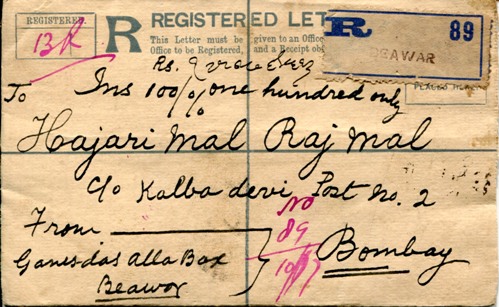 REGISTERED
13
R
REGISTERED LET
This Letter must be given to an Office
Office to be Registered, and a Receipt ob
R 89
AWAR
PLACED HERE
Rs.
To Ins 100/ one hundred only
Hajari Mal Raj Mal
C/o Kalba devi Post No. 2
From
No
89
Bombay
Ganesdas Alla Bax
Beawar